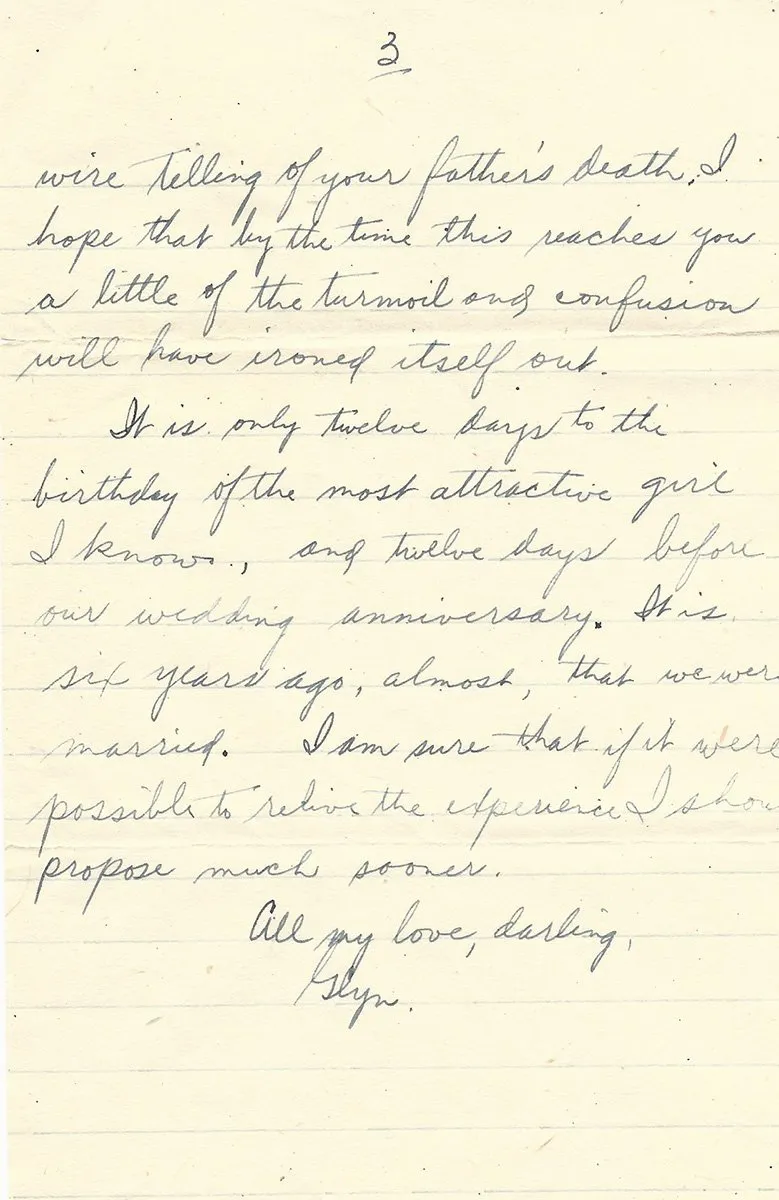 3
wire telling of your father's death. I
hope that by the time this reaches you
a little of the turmoil and confusion
will have ironed itself out.
It is only twelve days to the
birthday of the most attractive girl
I know, and twelve days before
our wedding anniversary. It is
six years ago, almost, that we were
married. I am sure that if it were
possible to relive the experience I shou
propose much sooner.
All my love, darling,
Glyn.